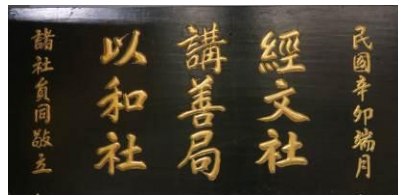 民國辛卯端月
經文社
講善局
以和社
諸社員同敬立